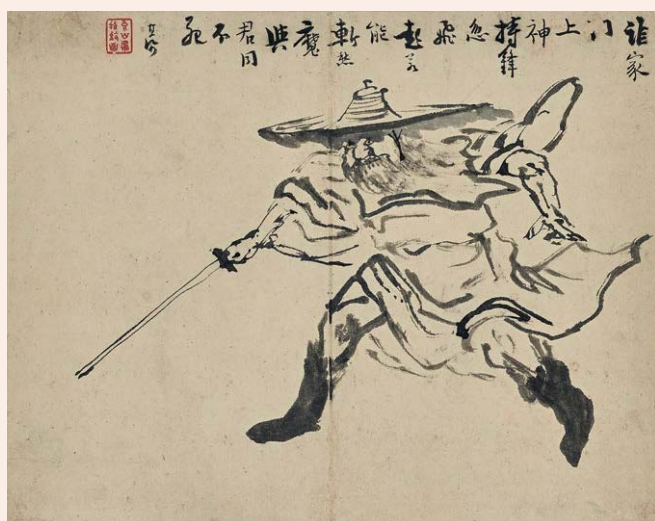 誰家
门
上
神
持鋒
忽
飛
起若
能
斬然
魔
與
君同
不
死